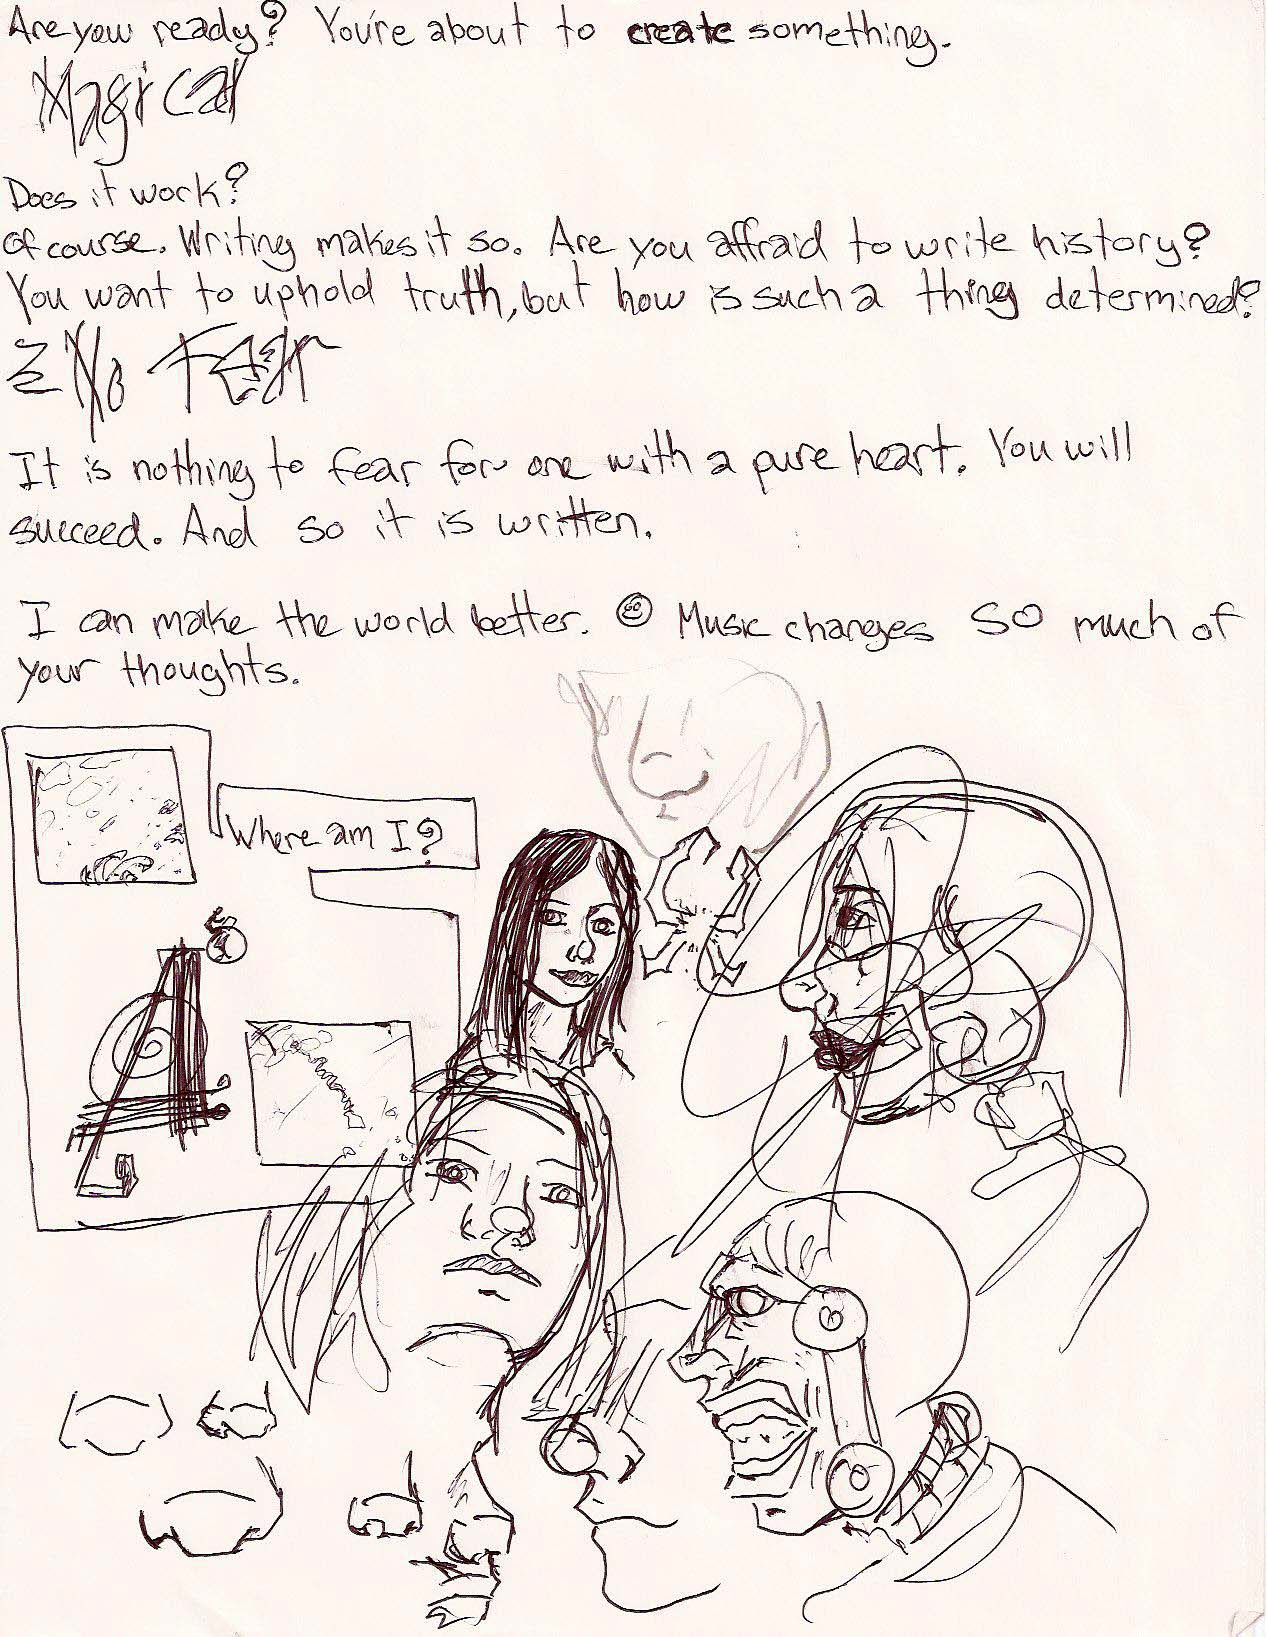 Are you ready? You're about to create something.
Magical
Does it work?
Of course. Writing makes it so. Are you affraid to write history?
You want to uphold truth, but how is such a thing determined?
No Fear
It is nothing to fear for one with a pure heart. You will
succeed. And so it is written.
I can make the world better. Music changes SO much of
your thoughts.
Where am I?